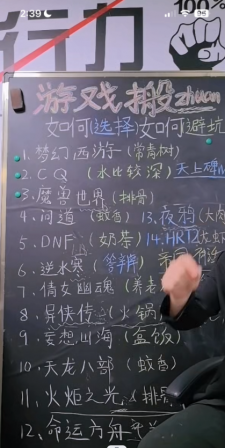 2:39
行力
100%
游戏搬zhuan
如何(选择)如何避坑
1.梦幻西游 (常青树)
2.CQ (水比较深) 天上碑
3.魔兽世界 (排骨)
4.问道 (蚊香) 13.夜鸦(大肉
5.DNF (奶茶) 14.HRT2
6.逆水寒 (答辨) 帝国
7.倩女幽魂 (养老
8.异侠传 (火锅
9.妄想山海 (盒饭)
10.天龙八部 (蚊香)
11.火炬之光 (排骨
12.命运方舟